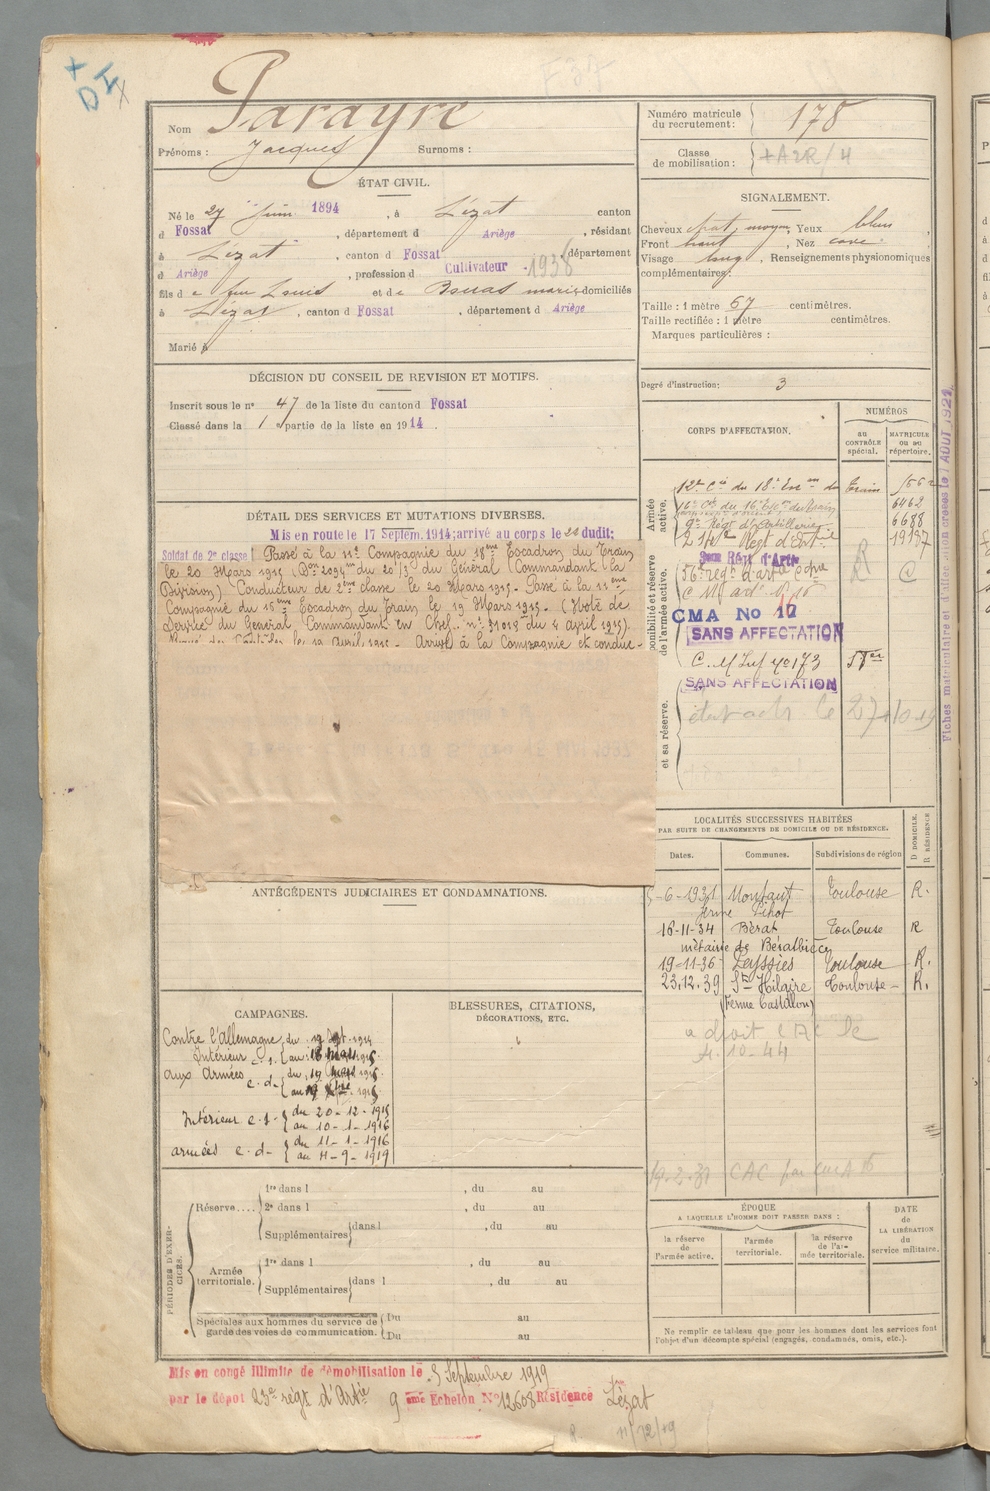 +
D I
X
Nom Parayre
Prénoms : Jacques Surnoms :
Numéro matricule du recrutement : 178
Classe de mobilisation :
ÉTAT CIVIL.
Né le 27 juin 1894, à Lézat canton
d Fossat, département d Ariège, résidant
à Lézat, canton d Fossat, département
d Ariège, profession d Cultivateur 1938
fils de feu Louis et de marie domiciliés
à Lézat, canton d Fossat, département d Ariège
Marié à
SIGNALEMENT.
Cheveux chat. moyen, Yeux bleus,
Front haut, Nez cave.
Visage long, Renseignements physionomiques
complémentaires :
Taille : 1 mètre 67 centimètres.
Taille rectifiée : 1 mètre centimètres.
Marques particulières :
Degré d'instruction : 3
DÉCISION DU CONSEIL DE REVISION ET MOTIFS.
Inscrit sous le n° 47 de la liste du canton d Fossat
Classé dans la 1e partie de la liste en 1914.
CORPS D'AFFECTATION.
NUMÉROS
au CONTRÔLE spécial.
MATRICULE ou au répertoire.
Armée active.
12e Cie du 18e Escon du Train
16e Cie du 16e Esc. du Train 6462
9e Régt d'Artillerie 6688
19137
56e regt d'art
CMA No 17
SANS AFFECTATION
SANS AFFECTATION
le 27-10-19
et sa réserve.
Fiches matriculaire et d'affectation créées le 1 AOUT 1927.
DÉTAIL DES SERVICES ET MUTATIONS DIVERSES.
Mis en route le 17 Septem. 1914; arrivé au corps le 20 dudit;
Soldat de 2e classe Passé à la 11e Compagnie du 18ème Escadron du Train
le 20 Mars 1915 (Don 2094 du 20/3 du Général Commandant la
Division) Conducteur de 2ème classe le 20 Mars 1915. Passé à la 11ème
Compagnie du 16ème Escadron du Train le 19 Mars 1915. (Note de
Service du Général Commandant en Chef. n° 31019 du 4 avril 1915)
le 19 Avril 1915 - Arrivé à la Compagnie et conduc-
LOCALITÉS SUCCESSIVES HABITÉES
PAR SUITE DE CHANGEMENTS DE DOMICILE OU DE RÉSIDENCE.
Dates. Communes. Subdivisions de région D DOMICILE. R RÉSIDENCE
5-6-1931 Monfaut Toulouse R.
ferme
16-11-34 Bérat Toulouse R
métairie de
19-11-36 Leyssies Toulouse R.
23.12.39 St Hilaire Toulouse - R.
(Ferme Castillon)
a droit C
le
4.10-44
19.2.31 CAC par
ANTÉCÉDENTS JUDICIAIRES ET CONDAMNATIONS.
CAMPAGNES.
Contre l'Allemagne du 19 Sept. 1914
Intérieur c.s. au 18 mars 1915
aux Armées c.d. du 19 mars 1915
au 19 Xbre 1915
Intérieur c.s. du 20-12-1915
au 10-1-1916
armées c.d. du 11-1-1916
au 11-9-1919
BLESSURES, CITATIONS,
DÉCORATIONS, ETC.
PÉRIODES D'EXERCICES.
Réserve.... 1re dans l , du au
2e dans l , du au
Supplémentaires dans l , du au
Armée territoriale. 1re dans l , du au
Supplémentaires dans l , du au
Spéciales aux hommes du service de
garde des voies de communication.
Du au
Du au
ÉPOQUE
A LAQUELLE L'HOMME DOIT PASSER DANS :
la réserve de l'armée active.
l'armée territoriale.
la réserve de l'armée territoriale.
DATE de LA LIBÉRATION du service militaire.
Ne remplir ce tableau que pour les hommes dont les services font
l'objet d'un décompte spécial (engagés, condamnés, omis, etc.).
Mis en congé illimité de démobilisation le 5 Septembre 1919
par le dépôt 23e régt d'Artie 9 ème Echelon N° 12608 Résidence Lézat